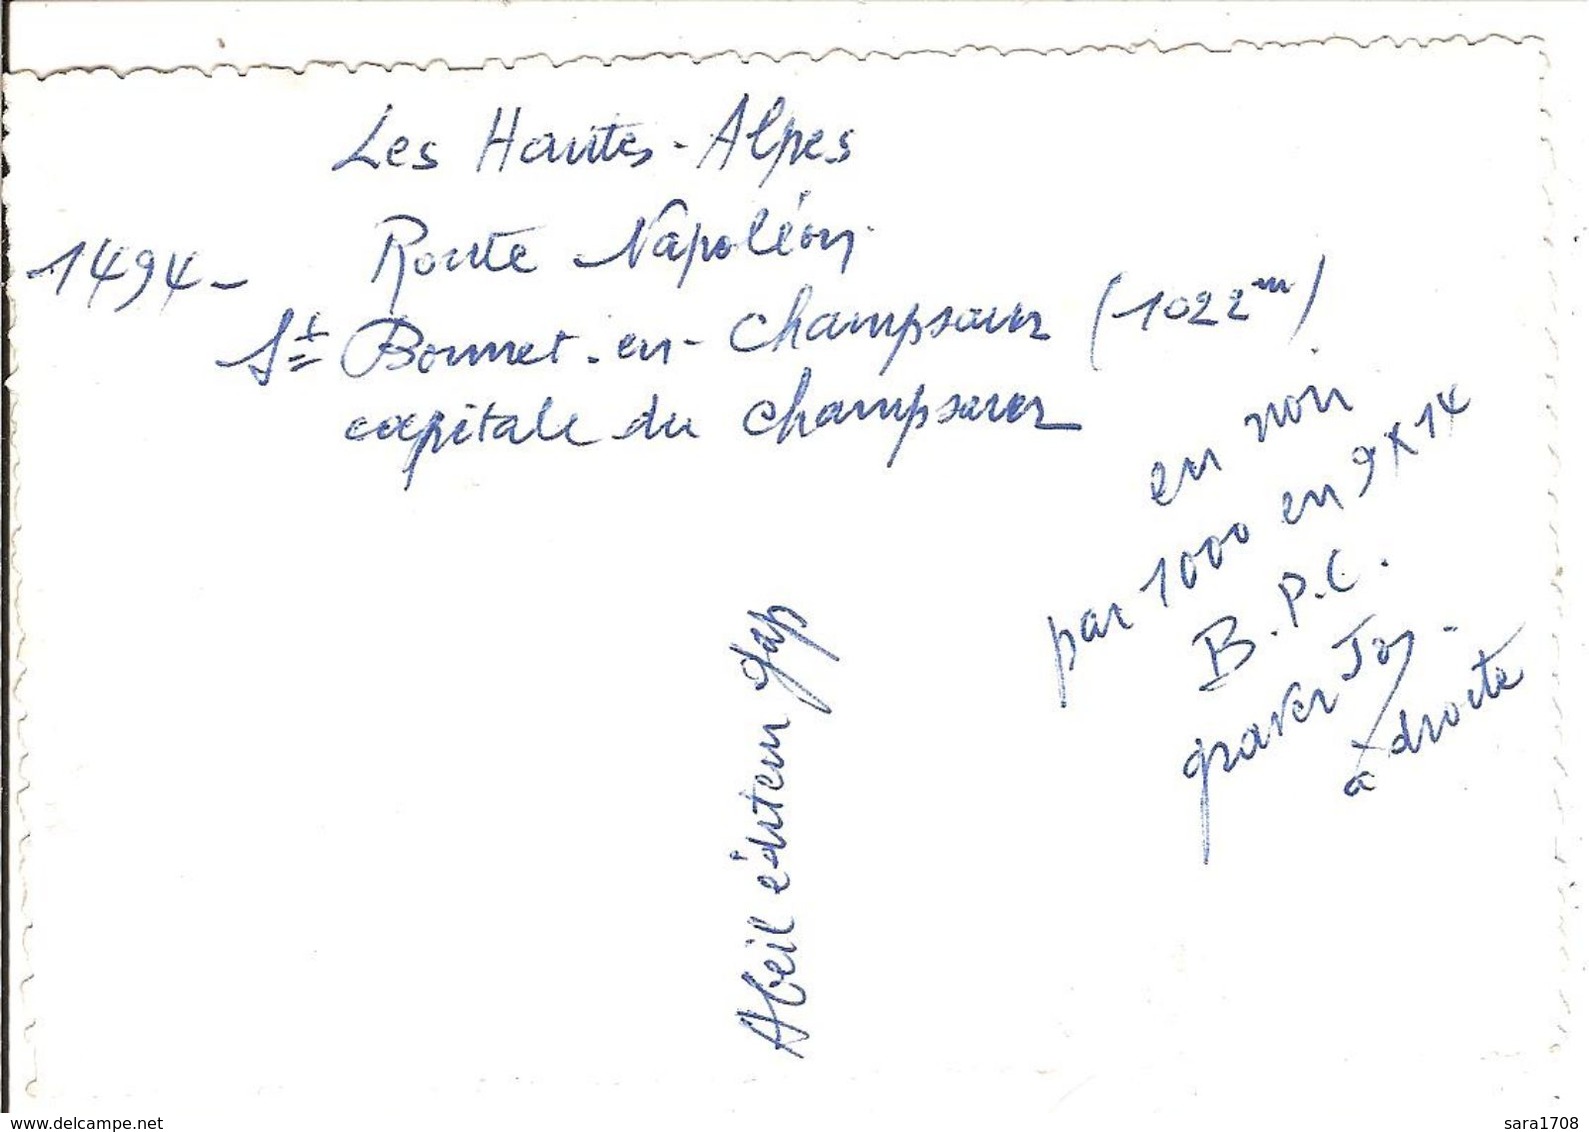 Les Hautes-Alpes
1494 - Route Napoléon
St Bonnet-en-Champsaur (1022m)
capitale du Champsaur
en noir
par 1000 en 9x14
B.P.C.
graver
à droite
Abeil éditeur Gap
www.delcampe.net
sara1708